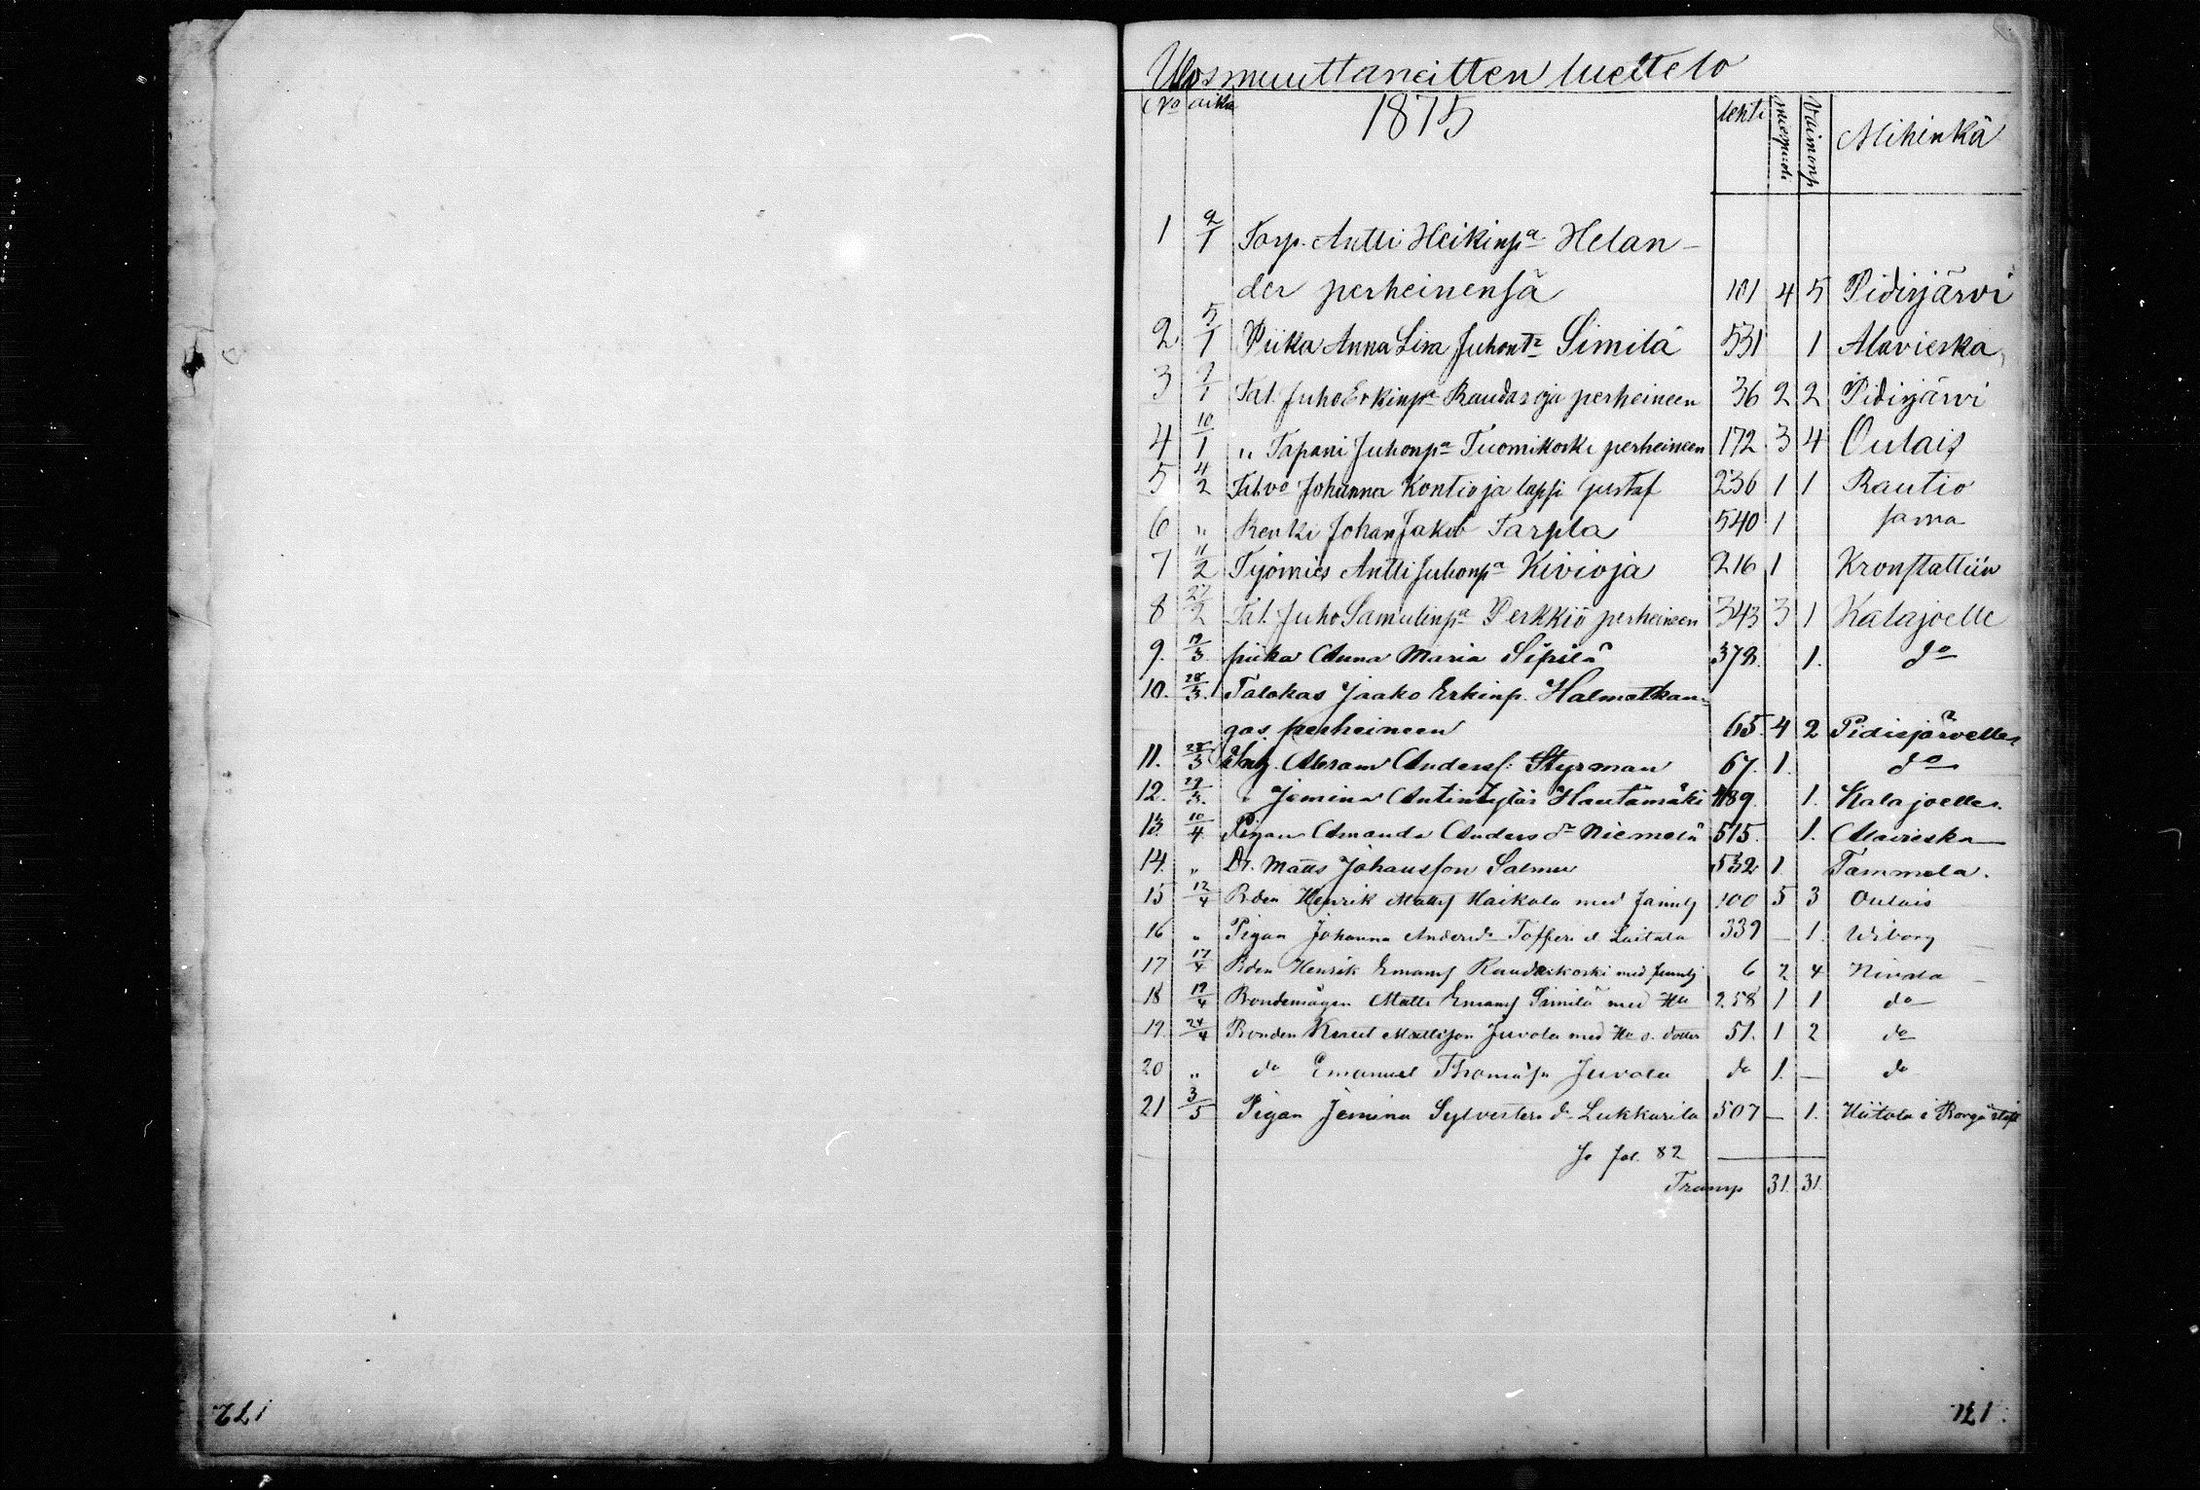 Ulosmuuttaneitten luettelo
No aika 1875 lehti miespuoli Vaimonp Mihinkä
1 2/1 Torp. Antti Heikinpa Helan-
der perheinensä 101 4 5 Pidisjärvi
2 5/1 Piika Anna Lisa Juhont:r Similä 531 1 Alavieska
3 7/1 Tal. Juho Erkinpa Raudasoja perheineen 36 2 2 Pidisjärvi
4 10/1 " Tapani Juhonpa Tuomikoski perheineen 172 3 4 Oulais
5 4/2 Tal.vo Johanna Kontio ja lapsi Gustaf 236 1 1 Rautio
6 " Renki Johan Jakob Tarpla 540 1 sama
7 11/2 Työmies Antti Juhonpa Kivioja 216 1 Kronstattiin
8 27/2 Tal. Juho Samulinpa Perkkiö perheineen 343 3 1 Kalajoelle
9. 19/3. piika Anna Maria Sipilä 378. 1. do
10. 28/3. Talokas Jaako Erkinp. Halmetkan-
gas perheineen 65. 4 2 Pidisjärvelle
11. 28/3 Abram Anderss: Styrman 67. 1. do
12. 29/3. " Jemina Antintytär Hautamäki 489. 1. Kalajoelle.
13. 10/4 Pigan Amanda Anders dr Niemelä 515. 1. Alavieska
14. " Dr. Matts Johansson Salmu 532 1. Tammela.
15 12/4 Bden Henrik Mattss Haikola med familj 100 5 3 Oulais
16 " Pigan Johanna Andersd. Tofferi el Laitala 339 — 1. Wiborg
17 17/4 Bden Henrik Emanss Raudaskoski med familj 6 2 4 Nivala
18 19/4 Bondemågen Matts Emanss Similä med Hu 258 1 1 do
19. 24/4 Bonden Knut Mattsson Juvola med Hu o. dotter 51. 1 2 do
20 " do Emanuel Thomass Juvola do 1. — do
21 3/5 Pigan Jemina Sylvesters d. Lukkarila 507 — 1. Hiitola i Borgå stift
Se fol. 82
Transp 31. 31.
172
171.